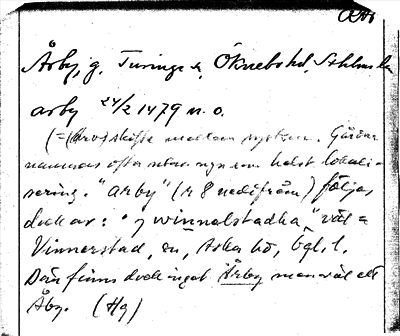 Årby, g. Turinge s, Öknebo hd, Sthlms län
arby 24/2 1479 n. o.
(= (Arv)skifte mellan syskon. Gården
nämnes ofta utan ngn som helst lokali-
sering. "arby" (r 8 nedifrån) följes
dock av: "j winnalstadha" väl =
Vinnerstad, sn, Aska hd, Ögl, l.
Där finns dock inget Årby man väl ett
Åby. (Hg)